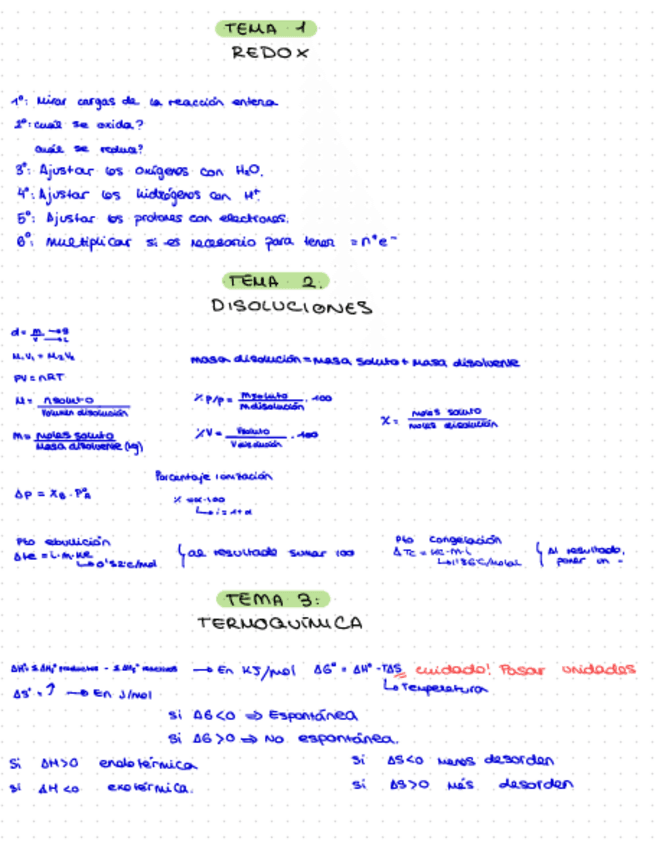 TEMA 1
REDOX
1º: Mirar cargas de la reacción entera
2º: cuál se oxida?
cuál se reduce?
3º: Ajustar los oxígenos con H₂O.
4º: Ajustar los hidrógenos con H⁺.
5º: Ajustar los protones con electrones.
6º: multiplicar si es necesario para tener = nºe⁻
TEMA 2.
DISOLUCIONES
d = m/v → g → L
M₁V₁ = M₂V₂
masa disolución = masa soluto + masa disolvente
PV = nRT
M = nsoluto / Volumen disolución
% P/P = msoluto / mdisolución . 100
X = moles soluto / moles disolución
m = moles soluto / Masa disolvente (kg)
% V = Vsoluto / Vdisolución . 100
Porcentaje ionización
ΔP = X_B . P°_A
% = α·100
↳ i = 1+α
Pto ebullición
Δte = i·m·Ke
↳ 0'52ºC/mol
al resultado sumar 100
Pto congelación
ΔTc = Kc·m·i
↳ 1'86ºC/molal
Al resultado, poner un -
TEMA 3:
TERMOQUÍMICA
ΔHº = ΣΔHfº productos - ΣΔHfº reactivos → En KJ/mol ΔGº = ΔHº - TΔS cuidado! Pasar unidades
ΔSº = ↑ → En J/mol
↳ Temperatura
Si ΔG<0 ⇒ Espontánea
Si ΔG>0 ⇒ No espontánea.
Si ΔH>0 endotérmica
Si ΔS<0 menos desorden
Si ΔH<0 exotérmica.
Si ΔS>0 más desorden